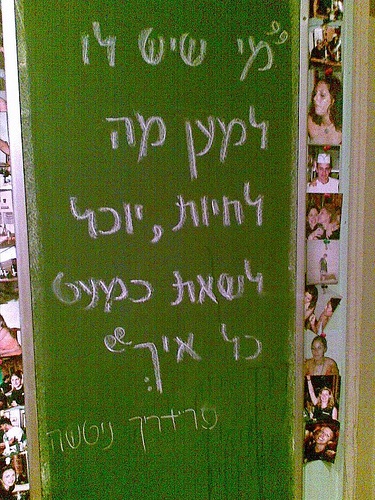 "מי שיש לו
למען מה
לחיות, יוכל
לשאת כמעט
כל איך"
פרידריך ניטשה